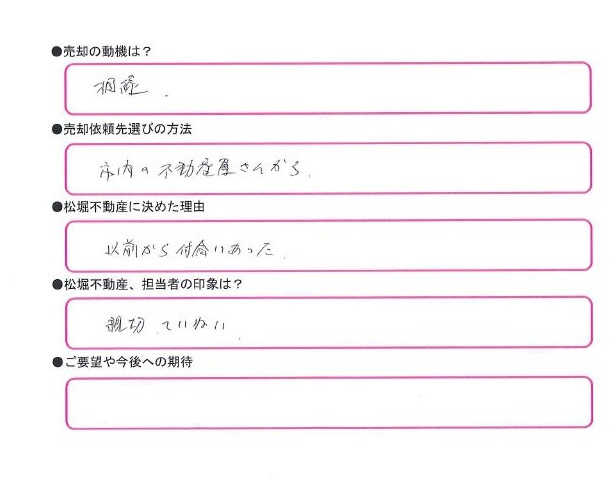 ●売却の動機は？
相続.
●売却依頼先選びの方法
市内の不動産屋さんから.
●松堀不動産に決めた理由
以前から付合いあった.
●松堀不動産、担当者の印象は？
親切.ていねい.
●ご要望や今後への期待